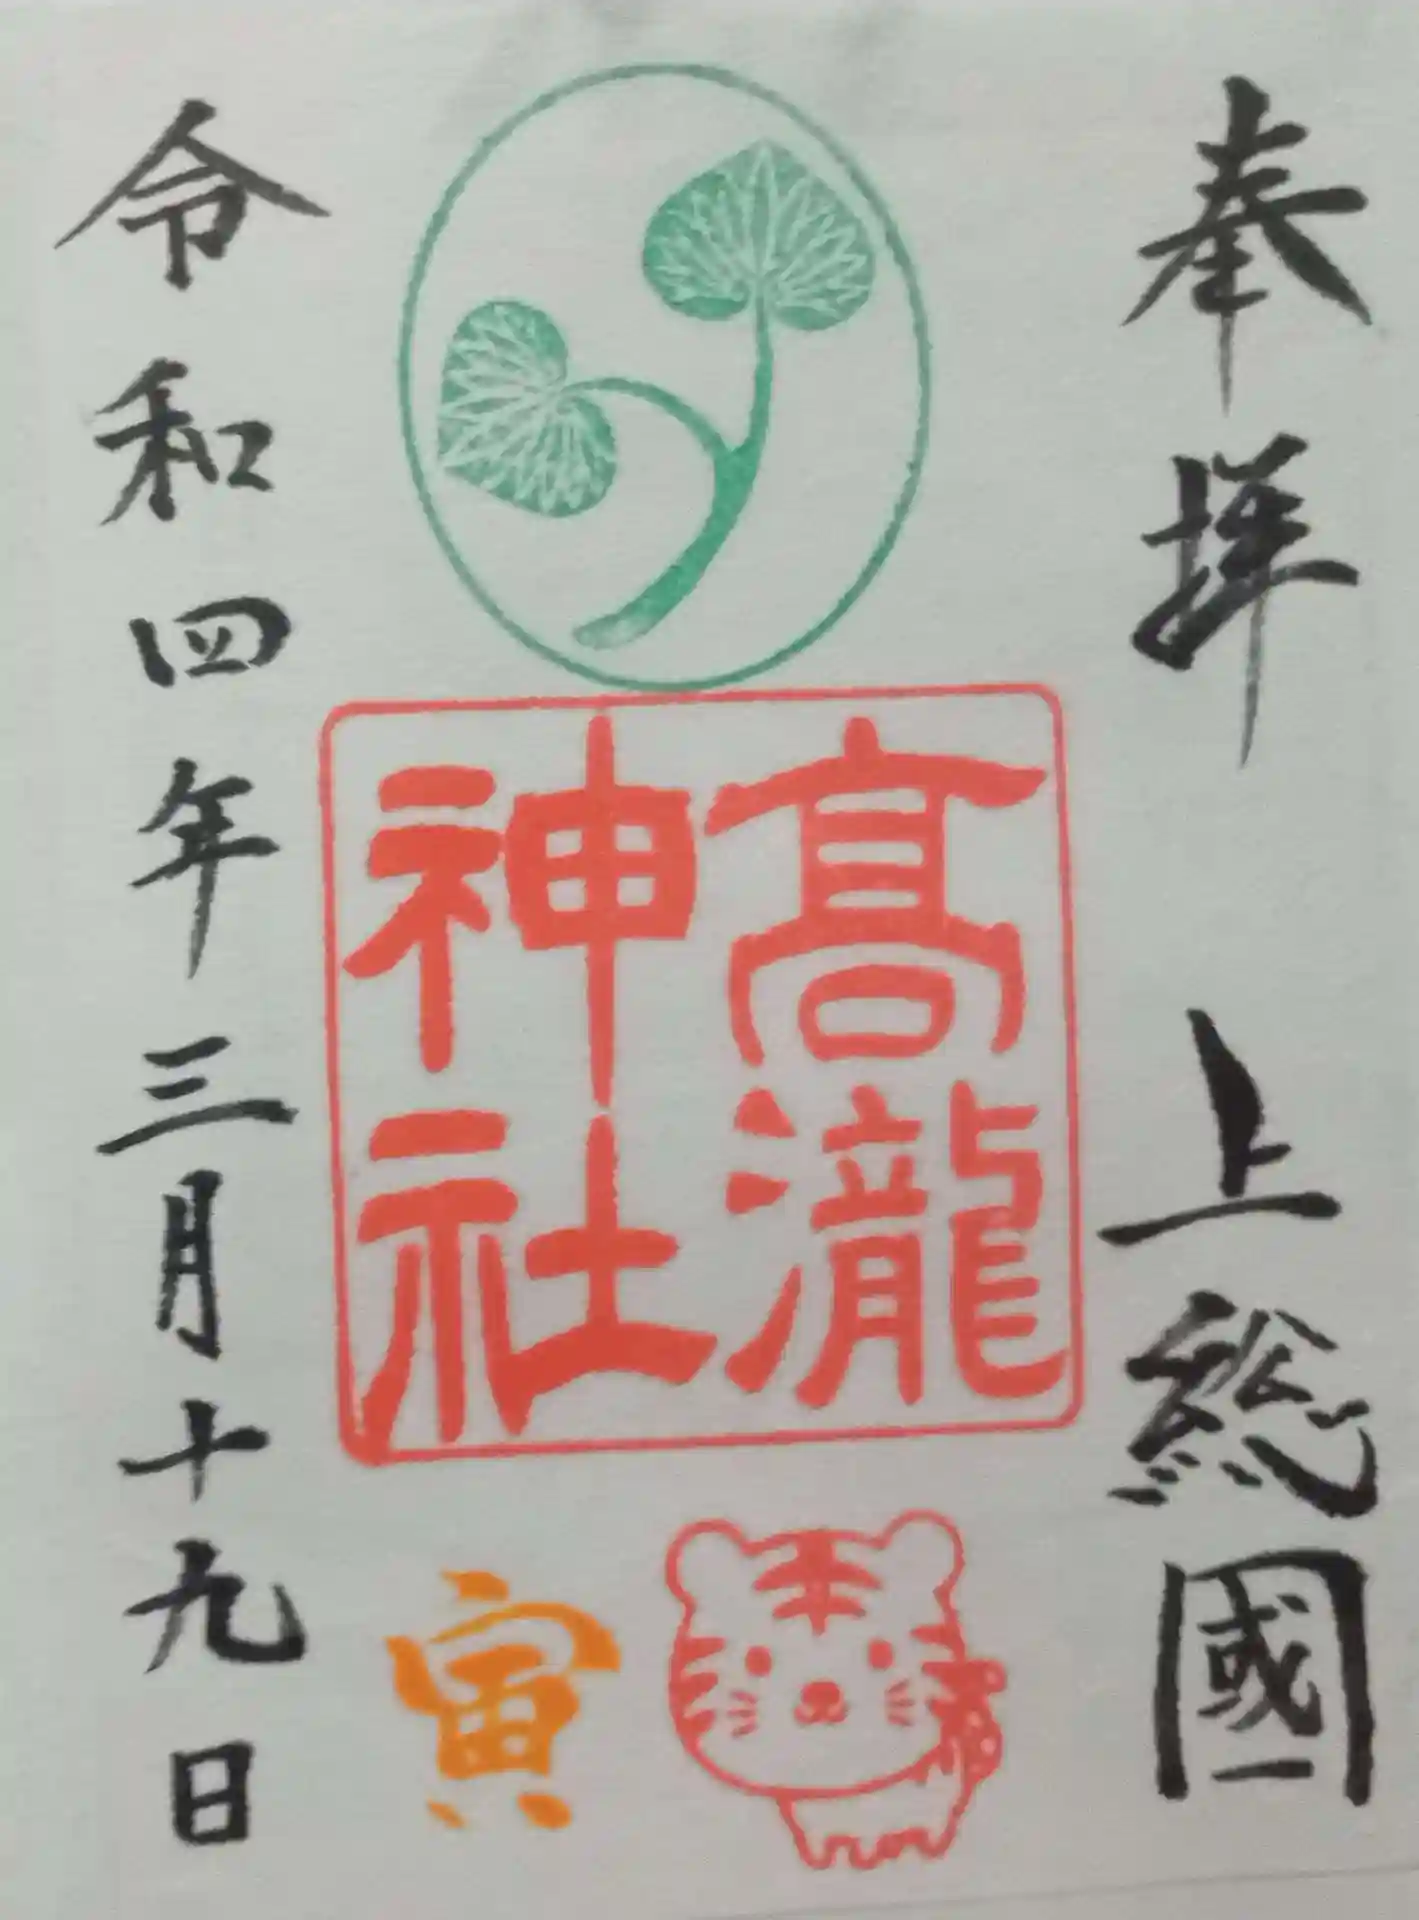 奉拝
上総國
髙瀧
神社
寅
令和四年三月十九日